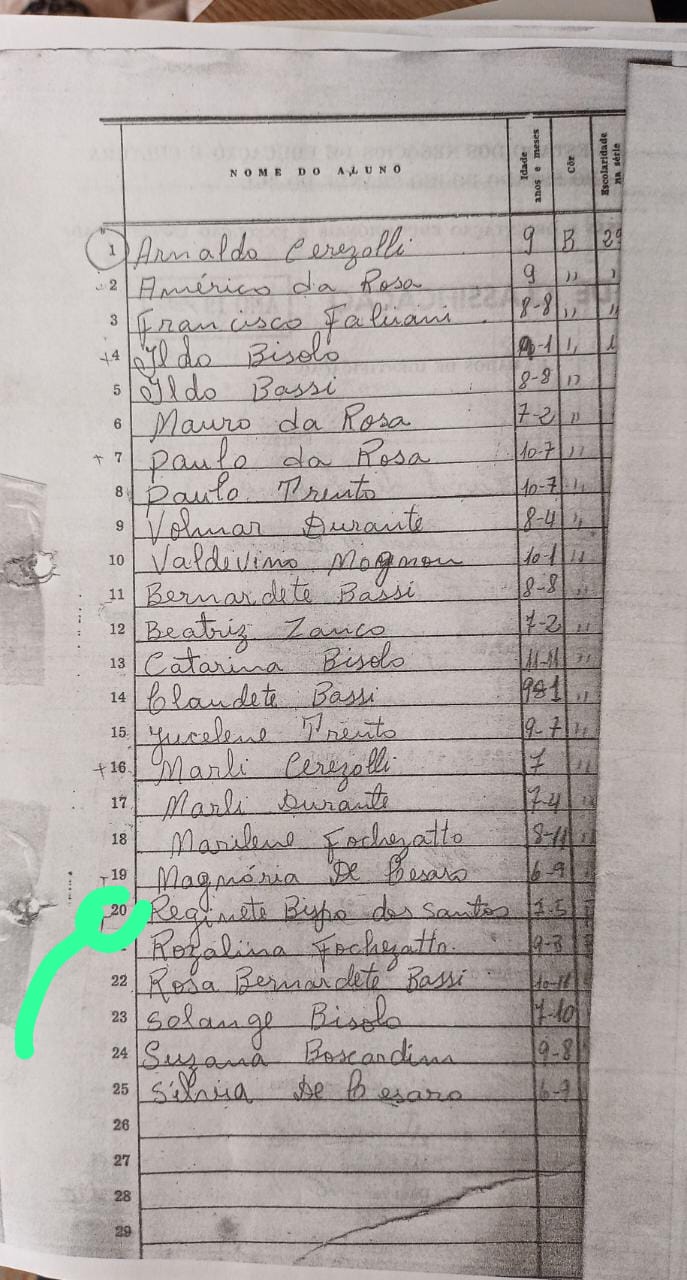 NOME DO ALUNO Idade anos e meses Côr Escolaridade na série
1 Arnaldo Cerezolli 9 B 2ª
2 Américo da Rosa 9 "
3 Francisco 8-8 " "
4 Ildo Bisolo "
5 Ildo Bassi 8-8 "
6 Mauro da Rosa 7-2 "
7 Paulo da Rosa 10-7 "
8 Paulo Trento 10-7 "
9 Volmar Durante 8-4 "
10 Valdivino 10-1 "
11 Bernardete Bassi 8-8 "
12 Beatriz Zanco 7-2 "
13 Catarina Bisolo 11-11 "
14 Claudete Bassi "
15 Jucelene Trento 9-7 "
16 Marli Cerezolli 7 "
17 Marli Durante 7-4 "
18 Marilene Fochezatto 8-11 "
19 Magnória De Cesaro 6-9
20 Reginete dos Santos 7-5
Rozalina Fochezatto.
22 Rosa Bernardete Bassi
23 Solange Bisolo 7-10
24 Suzana Boscardim 9-8
25 Silvia De Cesaro
26
27
28
29